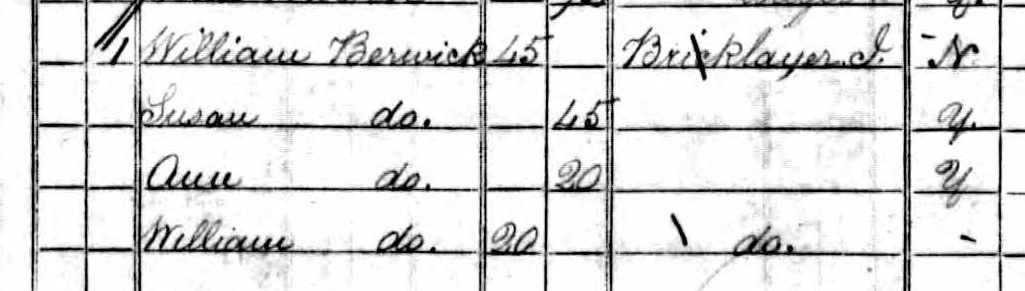 1 William Berwick 45 Bricklayer J. N.
Susan do. 45 Y.
Ann do. 20 Y
William do. 20 do. -